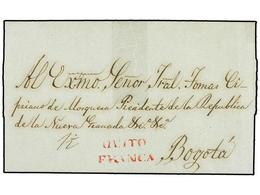 Al Exmo. Señor Tral. Tomas Ci-
priano de Mosquera Presidente de la Republica
de la Nueva Granada &c. &c.
QUITO
FRANCA
Bogotá